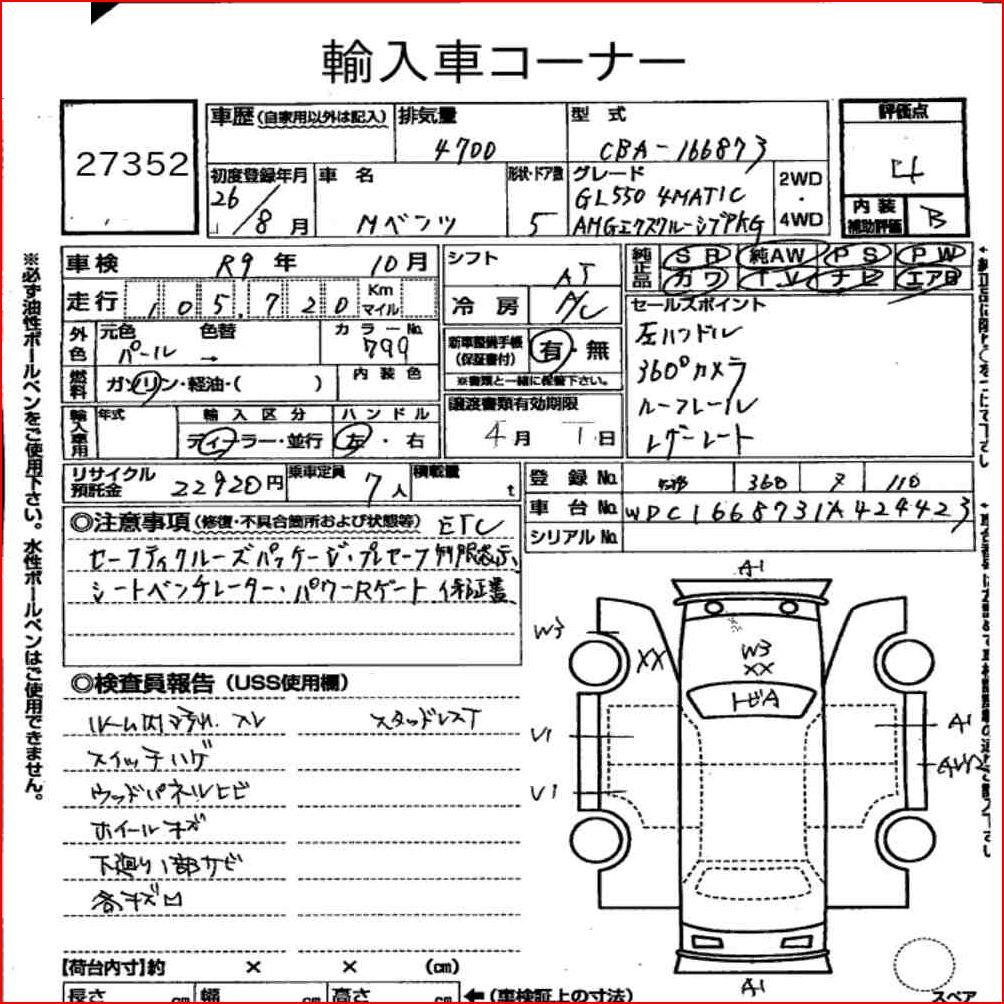 輸入車コーナー
27352
車歴(自家用以外は記入)
排気量
4700
型式
CBA-166873
評価点
4
内装
補助評価
B
初度登録年月
26/8月
車名
Mベンツ
形状・ドア数
5
グレード
GL550 4MATIC
AMGエクスクルーシブPKG
2WD
・
4WD
※必ず油性ボールペンをご使用下さい。水性ボールペンはご使用できません。
車検
R9年 10月
シフト
AT
純正品
SR 純AW PS PW
カワ TV ナビ エアB
走行
105,720
Km
マイル
冷房
A/C
セールスポイント
左ハンドル
360°カメラ
ルーフレール
レザーシート
外色
元色
パール
色替
→
カラーNo.
799
新車整備手帳
(保証書付)
有・無
※書類と一緒に保管下さい。
燃料
ガソリン・軽油・( )
内装色
譲渡書類有効期限
4月 1日
輸入車用
年式
輸入区分
ディーラー・並行
ハンドル
左・右
リサイクル
預託金
22920円
乗車定員
7人
積載量
t
登録No.
360
110
車台No.
WDC1668731A424423
シリアルNo.
◎注意事項(修復・不具合箇所および状態等) ETC
セーフティクルーズパッケージ・プレセーフ
シートベンチレーター・パワーRゲート 保証書
◎検査員報告(USS使用欄)
ルーム内汚れ、スレ
スタッドレスT
スイッチハゲ
ウッドパネルヒビ
ホイールキズ
下廻り1部サビ
各キズ凹
A1
W3
XX
W3
XX
トビA
U1
A1
U1
A1
【荷台内寸】約 × × (cm)
長さ cm 幅 cm 高さ cm
←(車検証上の寸法)
スペア